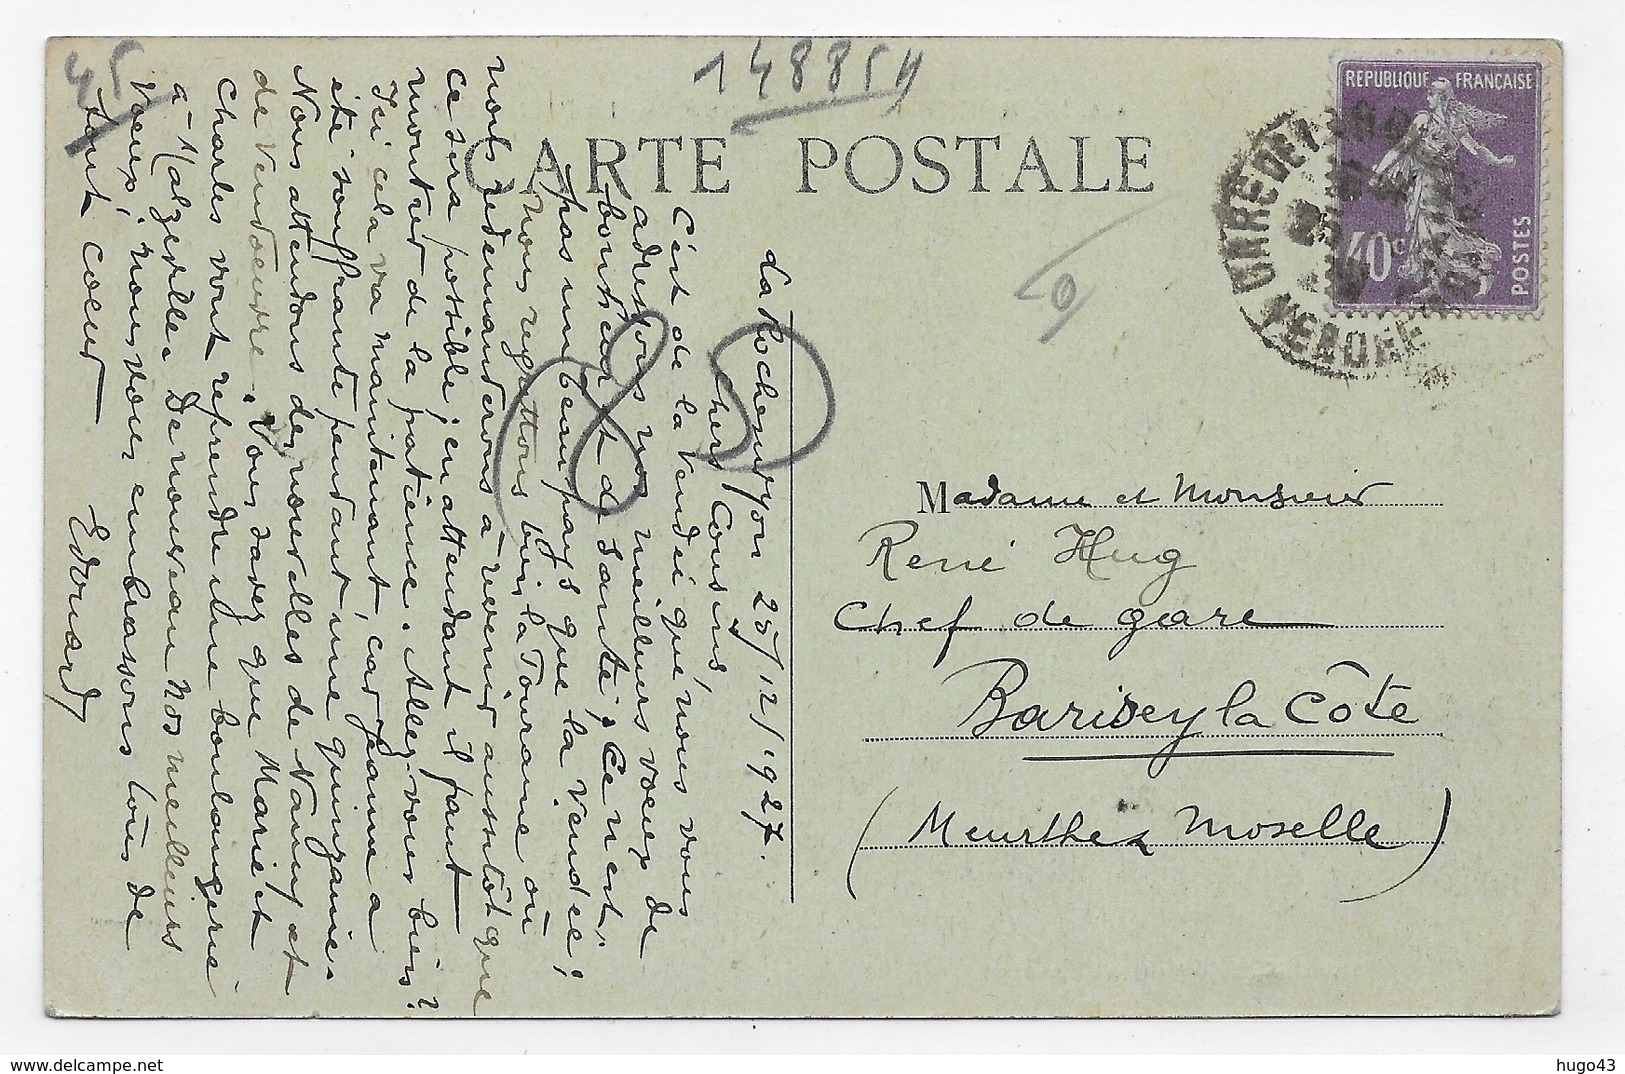 45
14885H
CARTE POSTALE
REPUBLIQUE FRANÇAISE
40c
POSTES
GARE DE
VENDEE
La Roche sur Yon 25/12/1927.
Chers Cousins,
C'est de la Vendée que nous vous
adressons nos meilleurs voeux de
bonheur et de santé, Ce n'est
pas un beau pays que la Vendée;
nous regrettons bien la Touraine où
nous redemanderons à revenir aussitôt que
ce sera possible; en attendant il faut
montrer de la patience. Allez-vous bien?
Ici cela va maintenant, car Jeanne a
été souffrante pendant une quinzaine.
Nous attendons des nouvelles de Nancy et
de Vendoeuvre. Vous savez que Marie et
Charles vont reprendre une boulangerie
à Malzéville. De nouveau nos meilleurs
voeux, nous vous embrassons tous de
tout coeur
Edouard
85
Madame et Monsieur
René Hug
Chef de gare
Barisey la Côte
(Meurthe & Moselle)
hugo43